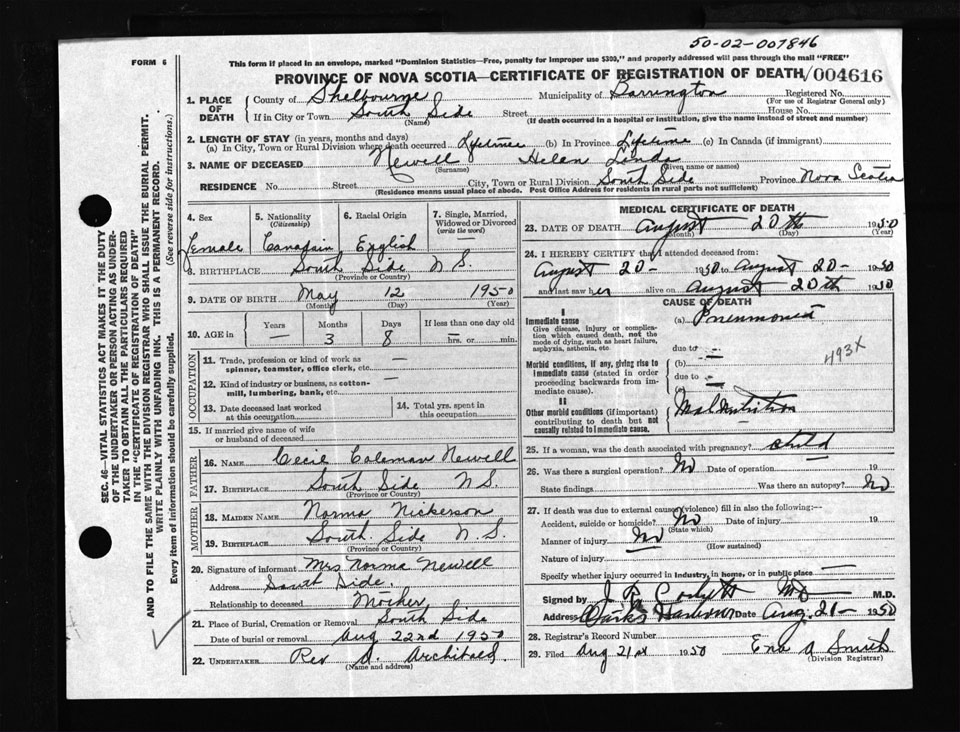 50-02-007846
FORM 6
This form if placed in an envelope, marked "Dominion Statistics—Free, penalty for improper use $300," and properly addressed will pass through the mail "FREE"
PROVINCE OF NOVA SCOTIA—CERTIFICATE OF REGISTRATION OF DEATH/004616
SEC. 46—VITAL STATISTICS ACT MAKES IT THE DUTY
OF THE UNDERTAKER OR PERSON ACTING AS UNDER-
TAKER TO OBTAIN ALL THE PARTICULARS REQUIRED
IN THE "CERTIFICATE OF REGISTRATION OF DEATH"
AND TO FILE THE SAME WITH THE DIVISION REGISTRAR WHO SHALL ISSUE THE BURIAL PERMIT.
WRITE PLAINLY WITH UNFADING INK. THIS IS A PERMANENT RECORD.
Every item of information should be carefully supplied. (See reverse side for instructions.)
1. PLACE OF DEATH County of Shelbourne Municipality of Barrington Registered No.
(For use of Registrar General only)
If in City or Town South Side Street House No.
(Name) (If death occurred in a hospital or institution, give the name instead of street and number)
2. LENGTH OF STAY (in years, months and days)
(a) In City, Town or Rural Division where death occurred Lifetime (b) In Province Lifetime (c) In Canada (if immigrant)
3. NAME OF DECEASED Newell Helen Linda
(Surname) (Given name or names)
RESIDENCE No. Street City, Town or Rural Division South Side Province Nova Scotia
(Residence means usual place of abode. Post Office Address for residents in rural parts not sufficient)
4. Sex 5. Nationality (Citizenship) 6. Racial Origin 7. Single, Married, Widowed or Divorced (write the word)
female Canadain English —
8. BIRTHPLACE South Side N S.
(Province or Country)
9. DATE OF BIRTH May 12 1950
(Month) (Day) (Year)
10. AGE in Years Months Days If less than one day
— 3 8 hrs. or min.
OCCUPATION
11. Trade, profession or kind of work as spinner, teamster, office clerk, etc. —
12. Kind of industry or business, as cotton-mill, lumbering, bank, etc. —
13. Date deceased last worked at this occupation
14. Total yrs. spent in this occupation
15. If married give name of wife or husband of deceased
FATHER
16. NAME Cecil Coleman Newell
17. BIRTHPLACE South Side N S.
(Province or Country)
MOTHER
18. MAIDEN NAME Norma Nickerson
19. BIRTHPLACE South Side N. S.
(Province or Country)
20. Signature of informant Mrs Norma Newell
Address South Side.
Relationship to deceased Mother
21. Place of Burial, Cremation or Removal South Side
Date of burial or removal Aug 22nd 1950
22. UNDERTAKER Rev Archibald.
(Name and address)
MEDICAL CERTIFICATE OF DEATH
23. DATE OF DEATH August 20th 1950
(Month) (Day) (Year)
24. I HEREBY CERTIFY that I attended deceased from:
August 20 - 1950 to August 20 - 1950
and last saw her alive on August 20th 1950
CAUSE OF DEATH
I
Immediate cause (a) Pneumonia
Give disease, injury or complication which caused death, not the mode of dying, such as heart failure, asphyxia, asthenia, etc.
due to —
493X
Morbid conditions, if any, giving rise to immediate cause (stated in order proceeding backwards from immediate cause).
(b)
due to —
(c)
II
Other morbid conditions (if important) contributing to death but not causally related to immediate cause.
Malnutrition
25. If a woman, was the death associated with pregnancy? child
26. Was there a surgical operation? No Date of operation 19
State findings Was there an autopsy? No
27. If death was due to external causes (violence) fill in also the following:—
Accident, suicide or homicide? No Date of injury 19
(State which)
Manner of injury No
(How sustained)
Nature of injury
Specify whether injury occurred in industry, in home, or in public place —
Signed by M.D.
Address Clarks Harbour Date Aug. 21 - 1950
28. Registrar's Record Number
29. Filed Aug 21st 1950 Ena A Smith
(Division Registrar)